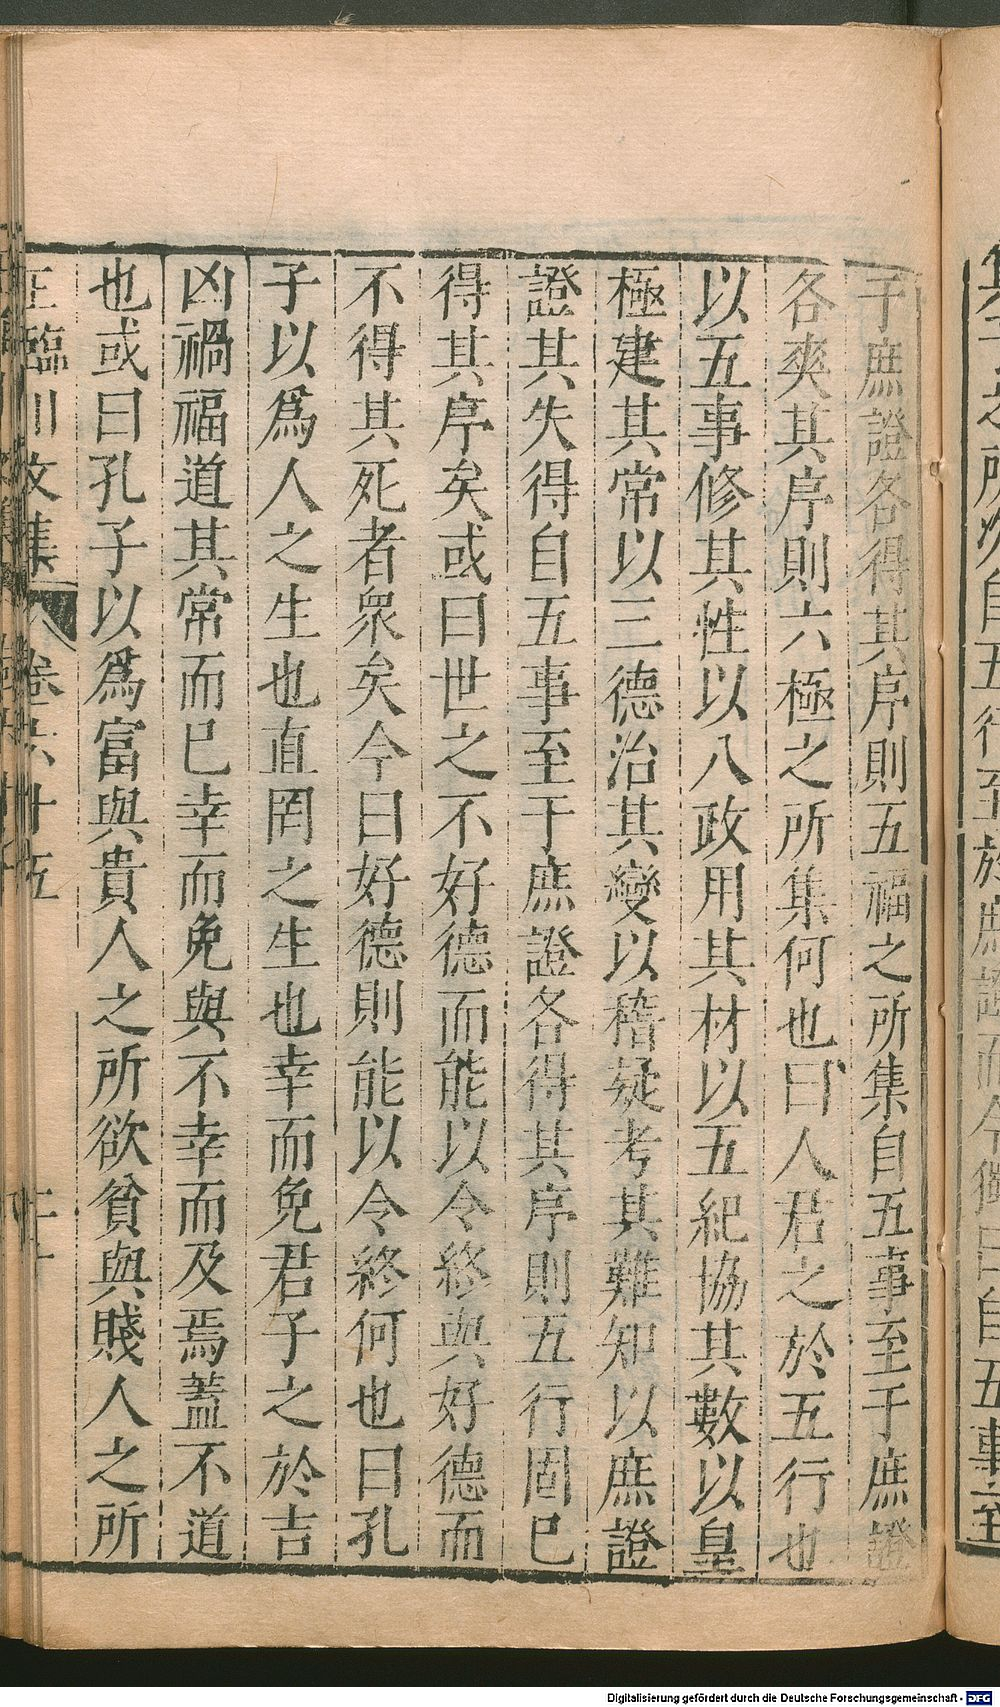 于庶證各得其序則五福之所集自五事至于庶證
各爽其序則六極之所集何也曰人君之於五行也
以五事修其性以八政用其材以五紀協其數以皇
極建其常以三德治其變以稽疑考其難知以庶證
證其失得自五事至于庶證各得其序則五行固已
得其序矣或曰世之不好德而能以令終與好德而
不得其死者衆矣今曰好德則能以令終何也曰孔
子以爲人之生也直罔之生也幸而免君子之於吉
凶禍福道其常而已幸而免與不幸而及焉蓋不道
也或曰孔子以爲富與貴人之所欲貧與賤人之所
王臨川文集 卷六十五 二十
Digitalisierung gefördert durch die Deutsche Forschungsgemeinschaft - DFG